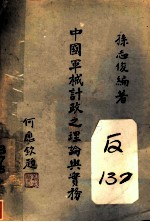 孫志俊編著
中國軍械計政之理論與實務
何應欽題
反
137